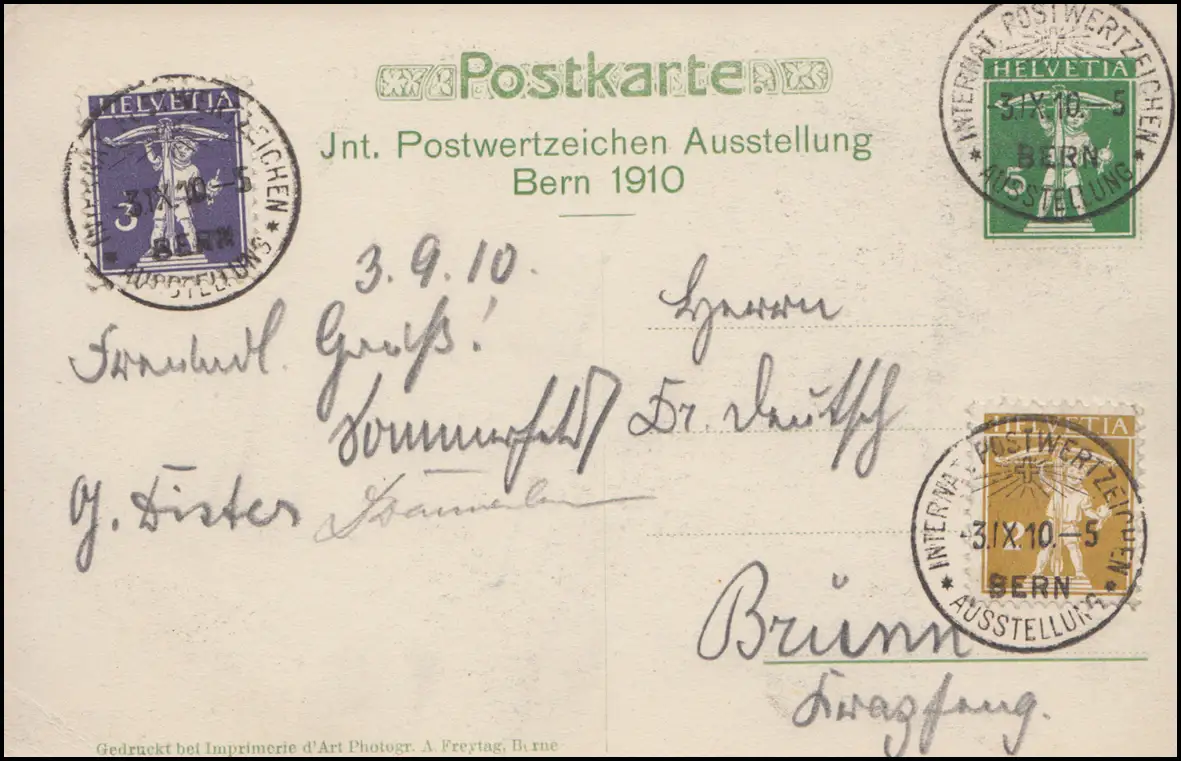 Postkarte.
Jnt. Postwertzeichen Ausstellung
Bern 1910
HELVETIA
3
INTERNAT. POSTWERTZEICHEN
-3.IX.10.-5
BERN
* AUSSTELLUNG *
HELVETIA
5
INTERNAT. POSTWERTZEICHEN
-3.IX.10.-5
BERN
* AUSSTELLUNG *
3.9.10.
Freundl. Gruß!
Sommerfeld
G. Dister
Herrn
Dr. Deutsch
HELVETIA
2
INTERNAT. POSTWERTZEICHEN
-3.IX.10.-5
BERN
* AUSSTELLUNG *
Brünn
Gedruckt bei Imprimerie d'Art Photogr. A. Freytag, Berne